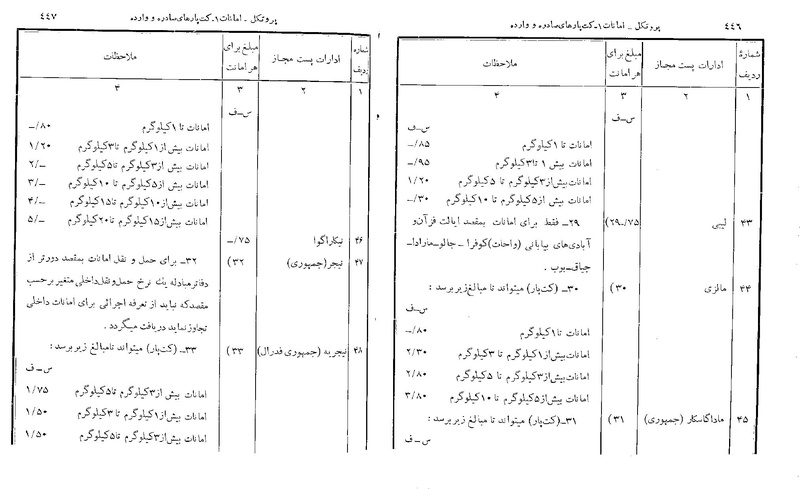 ۴۴۶ پروتکل ــ امانات ۱ـ کت‌پارهای صادره و وارده
شمارهٔ ردیف ادارات پست مجاز مبلغ برای هر امانت ملاحظات
۱ ۲ ۳ ۴
س‌ــ‌ف
س‌ــ‌ف
امانات تا ۱ کیلوگرم ۸۵/ــ
امانات بیش ۱ تا ۳ کیلوگرم ۹۵/ــ
امانات بیش از ۳ کیلوگرم تا ۵ کیلوگرم ۱/۲۰
امانات بیش از ۵ کیلوگرم تا ۱۰ کیلوگرم ۳۰/ــ
۴۳ لیبی ۷۵/ــ ۲۹) ۲۹ــ فقط برای امانات بمقصد ایالت فزآن و
آبادی‌های بیابانی (واحات) کوفرا ــ جالو ــ مارادا ــ
جیاق ــ بوب .
۴۴ مالزی ۳۰) ۳۰ــ (کت‌پار) میتواند تا مبالغ زیر برسد :
س‌ــ‌ف
امانات تا ۱ کیلوگرم ۸۰/ــ
امانات بیش از ۱ کیلوگرم تا ۳ کیلوگرم ۲/۳۰
امانات بیش از ۳ کیلوگرم تا ۵ کیلوگرم ۲/۸۰
امانات بیش از ۵ کیلوگرم تا ۱۰ کیلوگرم ۳/۸۰
۴۵ ماداگاسکار (جمهوری) ۳۱) ۳۱ــ (کت‌پار) میتواند تا مبالغ زیر برسد :
س‌ــ‌ف
پروتکل ــ امانات ۱ـ کت‌پارهای صادره و وارده ۴۴۷
شماره ردیف ادارات پست مجاز مبلغ برای هر امانت ملاحظات
۱ ۲ ۳ ۴
س‌ــ‌ف
امانات تا ۱ کیلوگرم ۸۰/ــ
امانات بیش از ۱ کیلوگرم تا ۳ کیلوگرم ۱/۲۰
امانات بیش از ۳ کیلوگرم تا ۵ کیلوگرم ۲/ــ
امانات بیش از ۵ کیلوگرم تا ۱۰ کیلوگرم ۳/ــ
امانات بیش از ۱۰ کیلوگرم تا ۱۵ کیلوگرم ۴/ــ
امانات بیش از ۱۵ کیلوگرم تا ۲۰ کیلوگرم ۵/ــ
۴۶ نیکاراگوا ۷۵/ــ
۴۷ نیجر (جمهوری) ۳۲) ۳۲ــ برای حمل و نقل امانات بمقصد دورتر از
دفاتر مبادله یك نرخ حمل و نقل داخلی متغیر بر حسب
مقصد که نباید از تعرفه اجرائی برای امانات داخلی
تجاوز نماید دریافت میگردد .
۴۸ نیجریه (جمهوری فدرال) ۳۳) ۳۳ــ (کت‌پار) میتواند تا مبالغ زیر برسد :
س‌ــ‌ف
امانات بیش از ۳ کیلوگرم تا ۵ کیلوگرم ۱/۷۵
امانات بیش از ۱ کیلوگرم تا ۳ کیلوگرم ۱/۵۰
امانات بیش از ۳ کیلوگرم تا ۵ کیلوگرم ۱/۵۰